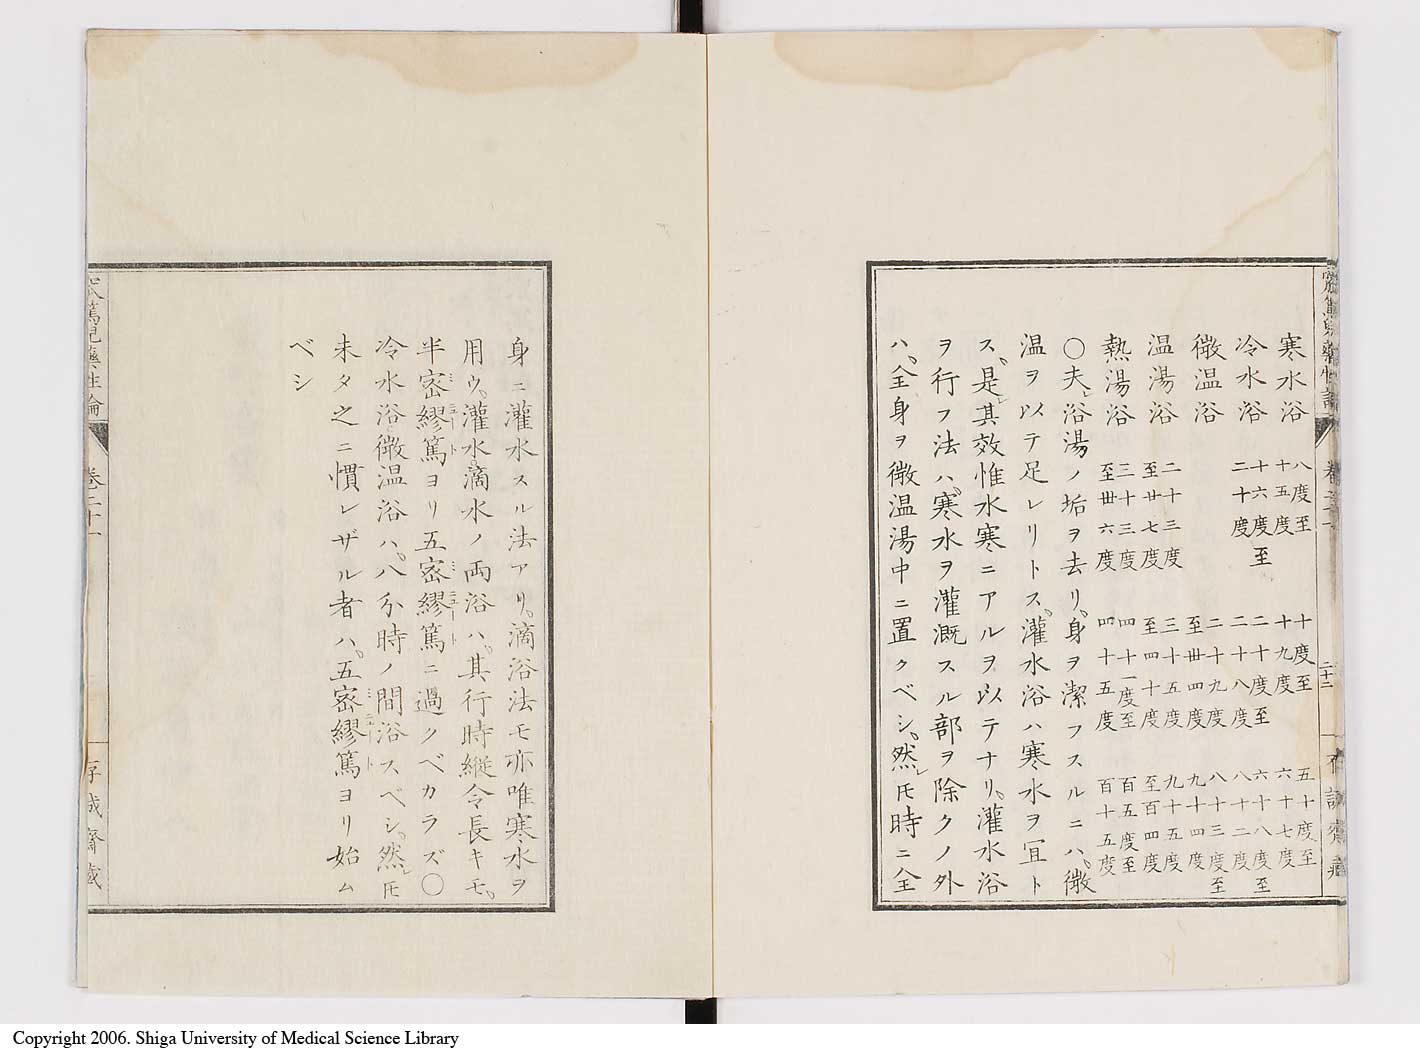 寒水浴 八度至十五度 十度至十九度 五十度至六十七度
冷水浴 十六度至二十度 二十度至二十八度 六十八度至八十二度
微温浴 二十九度至卅四度 八十三度至九十四度
温湯浴 二十三度至廿七度 三十五度至四十度 九十五度至百四度
熱湯浴 三十三度至卅六度 四十一度至四十五度 百五度至百十五度
〇夫レ浴湯ノ垢ヲ去リ。身ヲ潔フスルニハ。微
温ヲ以テ足レリトス。灌水浴ハ寒水ヲ冝ト
ス。是レ其效惟水寒ニアルヲ以テナリ。灌水浴
ヲ行フ法ハ。寒水ヲ灌漑スル部ヲ除クノ外
ハ。全身ヲ微温湯中ニ置クベシ。然レ𪜈時ニ全
二十二
身ニ灌水スル法アリ。滴浴法モ亦唯寒水ヲ
用ウ。灌水滴水ノ両浴ハ。其行時縦令長キモ。
半密繆篤ミニュートヨリ五密繆篤ミニュートニ過クベカラズ〇
冷水浴微温浴ハ。八分時ノ間浴スベシ。然レ𪜈
未タ之ニ慣レザル者ハ。五密繆篤ミニュートヨリ始ム
ベシ
篤児藥性論 巻二十一 存誠齋蔵
Copyright 2006. Shiga University of Medical Science Library